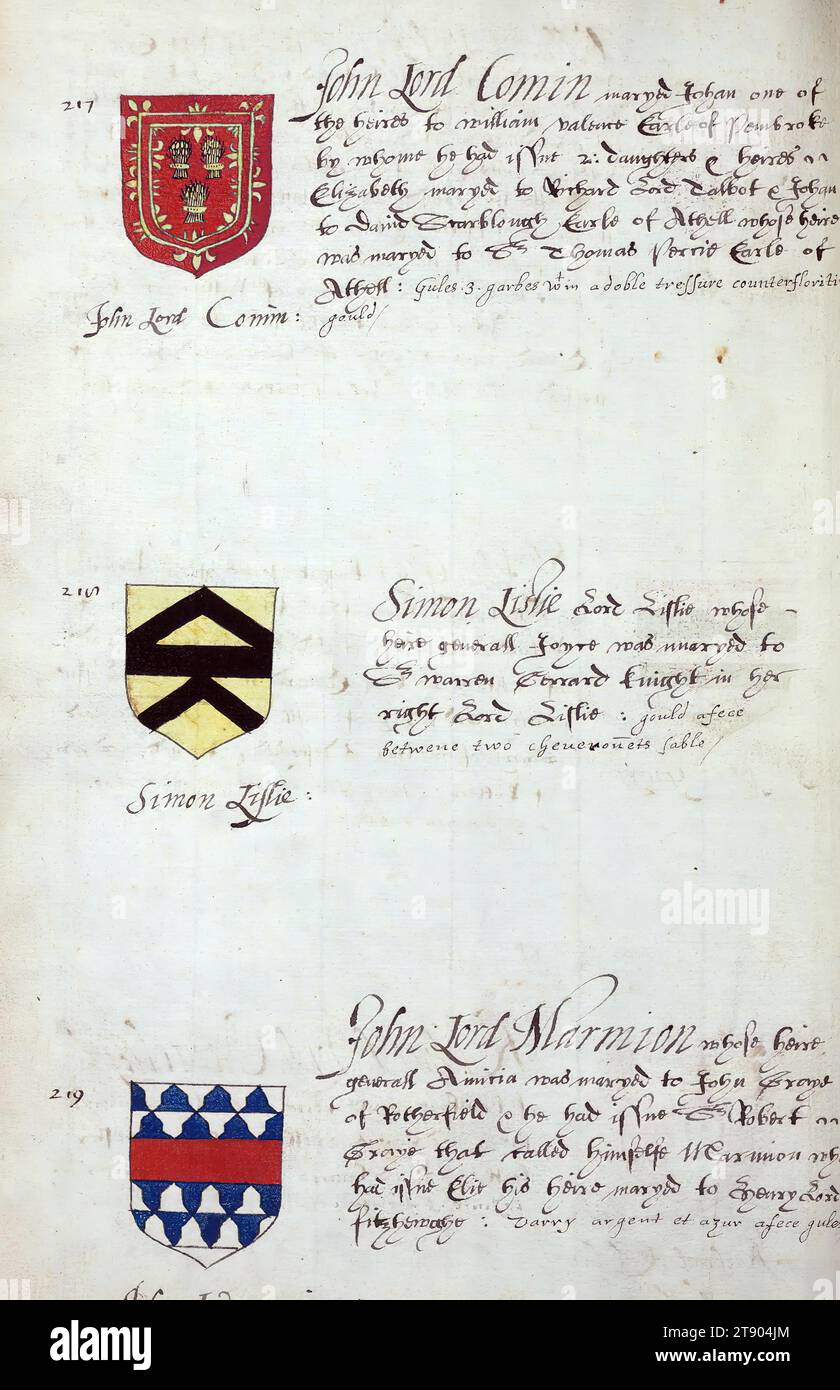 217
John Lord Comin maryed Johan one of
the heires to william valence Earle of Pembroke
by whome he had issue 2: daughters & heires
Elizabeth maryed to Richard Lord Talbot & Johan
to David Earle of Athell whose heire
was maryed to Sr Thomas Percie Earle of
Athell: Gules .3. garbes wtin a doble tressure counterfloriti
gould/
John Lord Comin:
218
Simon Lislie Lord Lislie whose
heire generall Joyce was maryed to
Sr warren Gerrard knight in her
right Lord Lislie: gould a fece
betwene two cheveronets sable/
Simon Lislie:
219
John Lord Marmion whose heire
generall Amicia was maryed to John Graye
of Rotherfield & he had issue Sr Robert
Graye that called himselfe Marmion wh
had issue Elie his heire maryed to Henry Lord
fitzhewghe: varry argent et azur a fece gule
alamy
alamy
Image ID: 2T904JM
www.alamy.com